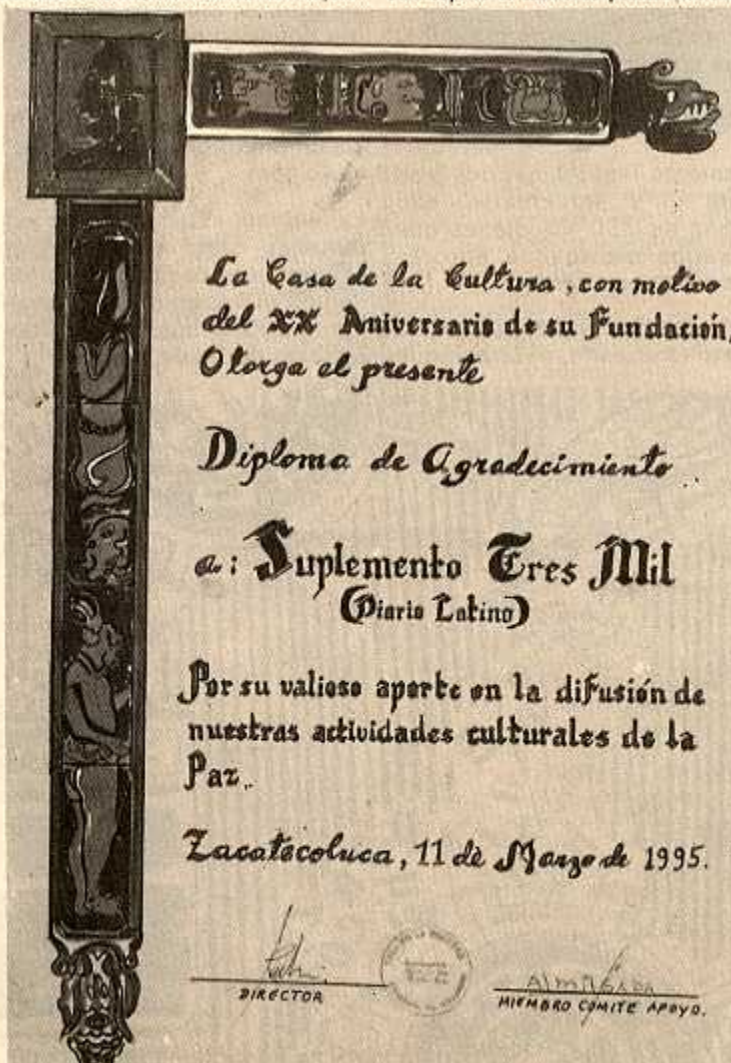 La Casa de la Cultura, con motivo
del XX Aniversario de su Fundación,
Otorga el presente
Diploma de Agradecimiento
a: Suplemento Tres Mil
(Diario Latino)
Por su valioso aporte en la difusión de
nuestras actividades culturales de la
Paz.
Zacatecoluca, 11 de Marzo de 1995.
DIRECTOR
MIEMBRO COMITE APOYO.